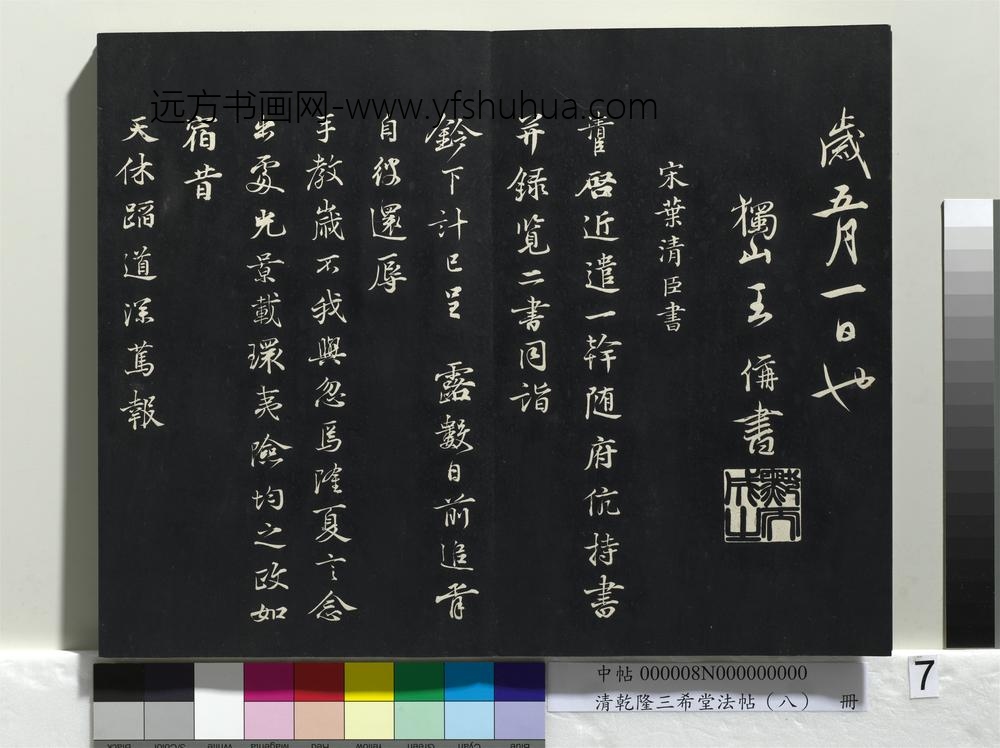 歲五月一日也
獨山王書
宋葉清臣書
啓近遣一幹随府伉持書
并録覧二書同詣
鈴下計已呈 露數日前追胥
自還辱
手教歳不我與忽焉隆夏言念
出處光景載環夷險均之政如
宿昔
天休蹈道深篤報
远方书画网-www.yfshuhua.com
中帖 000008N000000000
清乾隆三希堂法帖（八） 冊
7
Black
3/Color
White
Magenta
Red
Yellow
Green
Cyan
Blue